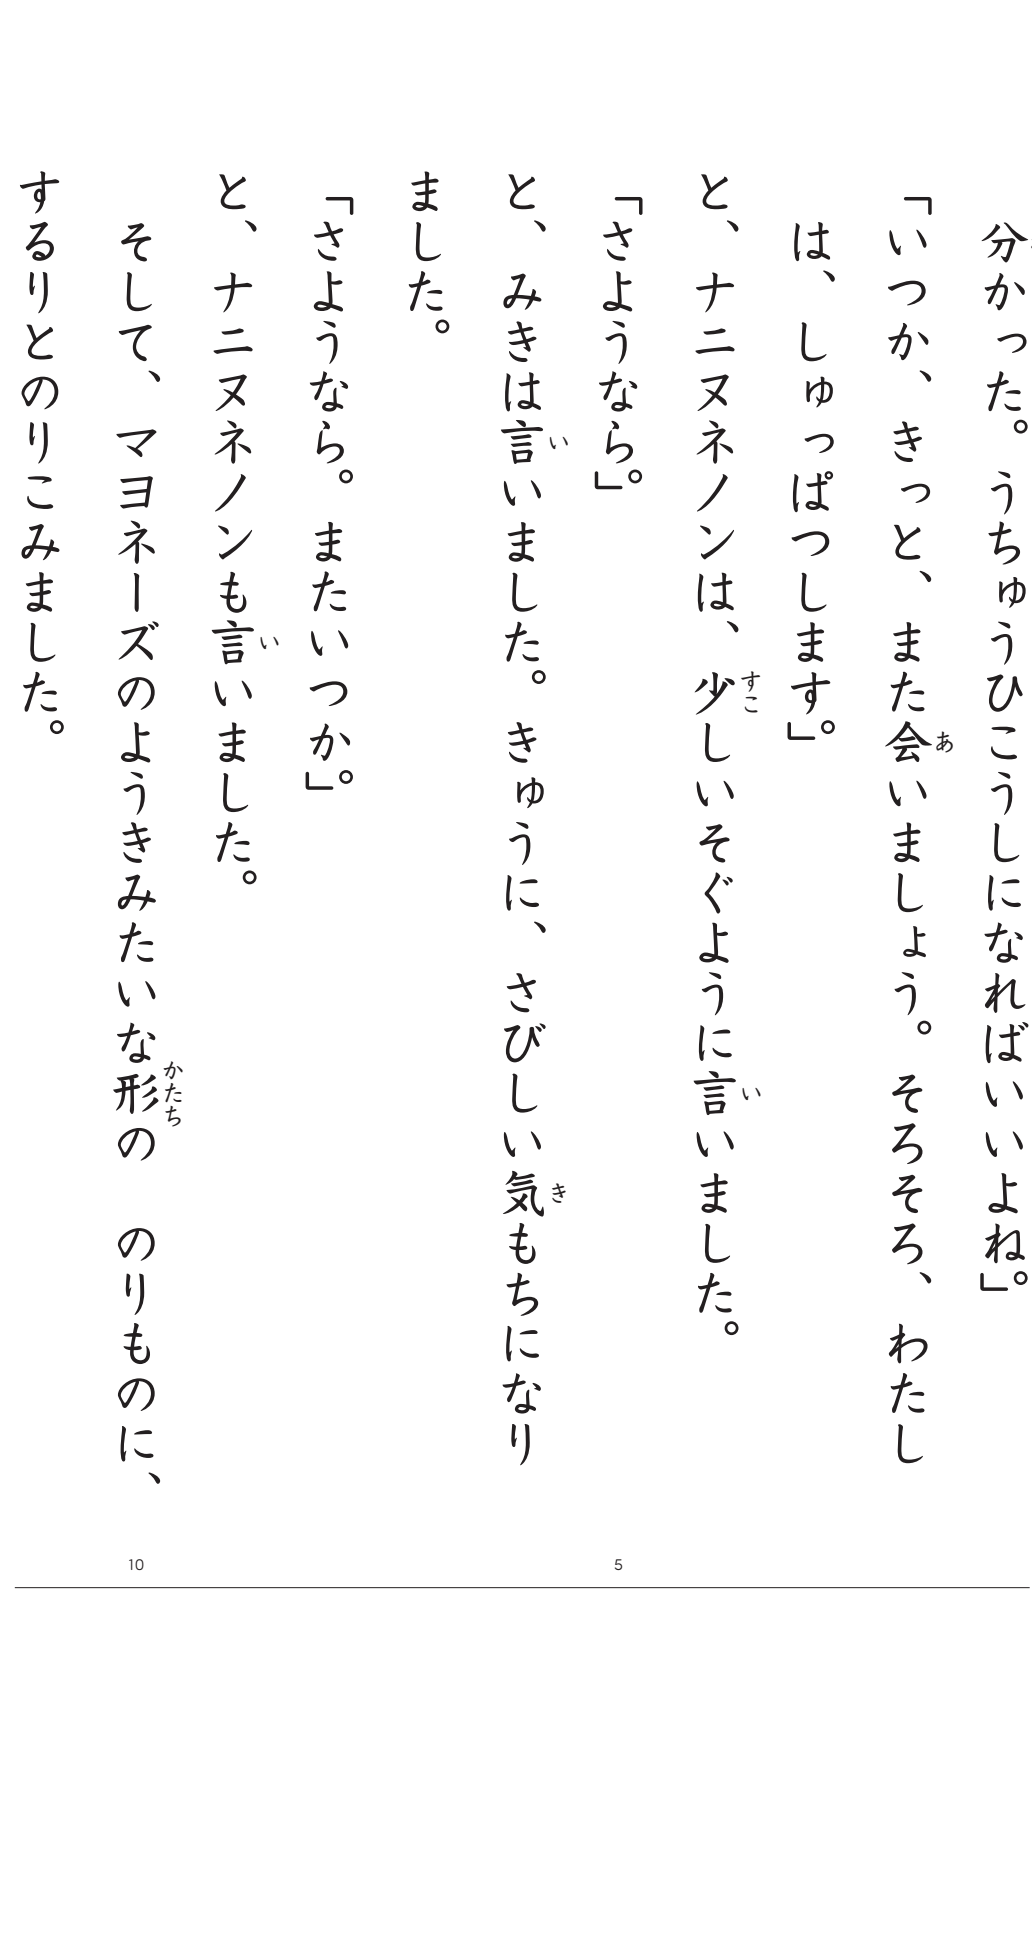 分かった。うちゅうひこうしになればいいよね」。
「いつか、きっと、また会いましょう。そろそろ、わたし
は、しゅっぱつします」。
と、ナニヌネノンは、少しいそぐように言いました。
「さようなら」。
と、みきは言いました。きゅうに、さびしい気もちになり
ました。
「さようなら。またいつか」。
と、ナニヌネノンも言いました。
そして、マヨネーズのようきみたいな形の　のりものに、
するりとのりこみました。
あ
すこ
い
い
き
い
かたち
5
10